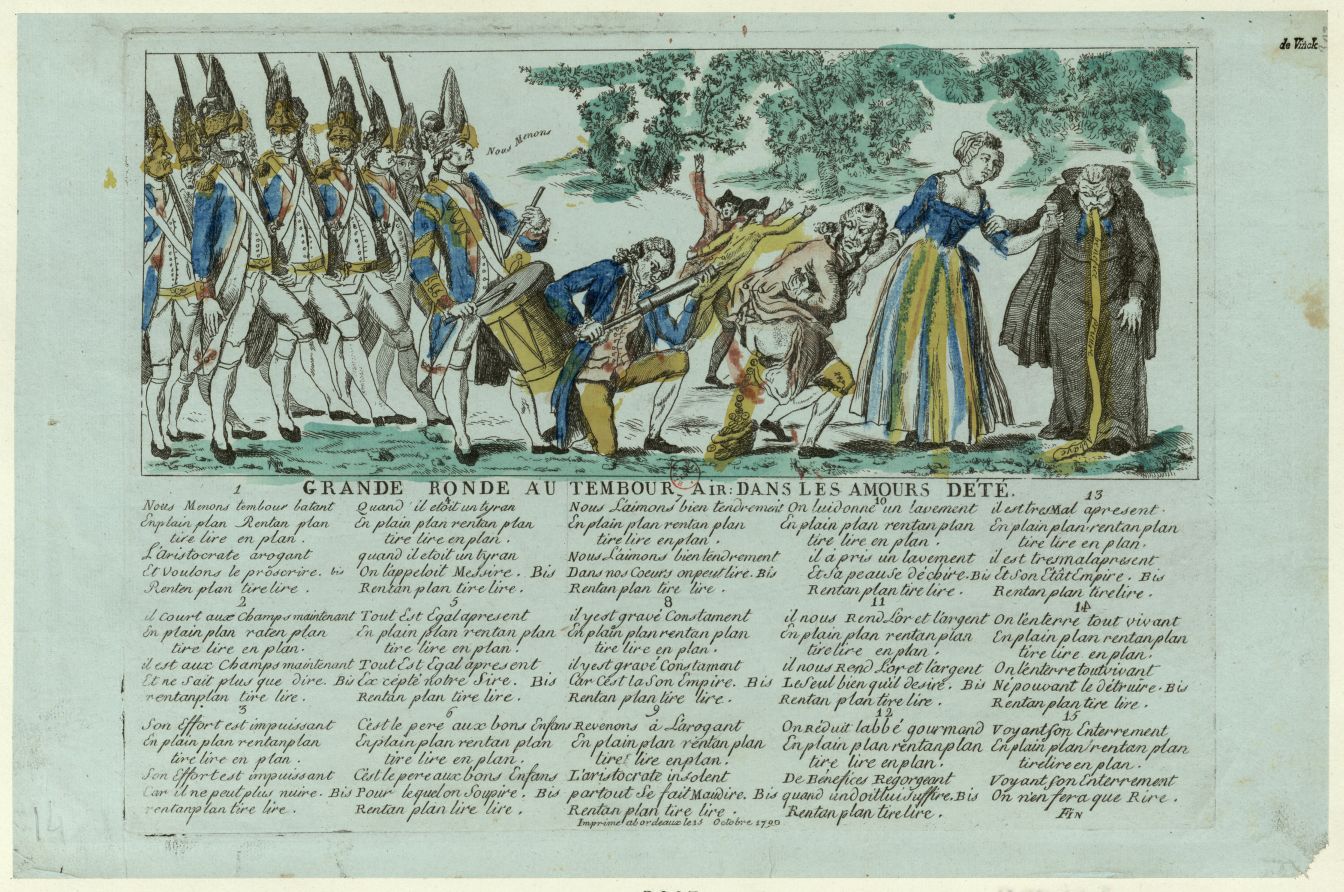 de Vinck
Nous Menons
GRANDE RONDE AU TEMBOUR, AiR: DANS LES AMOURS DÉTÉ.
1
Nous Menons tembour batant
En plain plan Rentan plan
tire lire en plan.
L'aristocrate arogant
Et Voulons le proscrire. bis
Renten plan tire lire.
2
il Court aux Champs maintenant
En plain plan raten plan
tire lire en plan.
il est aux Champs maintenant
Et ne Sait plus que dire. Bis
rentanplan tire lire.
3
Son Effort est impuissant
En plain plan rentanplan
tire lire en plan.
Son Effort est impuissant
Car il ne peut plus nuire. Bis
rentanplan tire lire.
4
Quand il etoit un tyran
En plain plan rentan plan
tire lire en plan.
quand il etoit un tyran
On l'appeloit Messire. Bis
Rentan plan tire lire.
5
Tout Est Egal apresent
En plain plan rentan plan
tire lire en plan.
Tout Est Egal apresent
Excépté notre Sire. Bis
Rentan plan tire lire.
6
C'est le pere aux bons Enfans
En plain plan rentan plan
tire lire en plan.
C'est le pere aux bons Enfans
Pour lequel on Soupire. Bis
Rentan plan lire lire.
Nous L'aimons bien tendrement
En plain plan rentan plan
tire lire en plan.
Nous L'aimons bien tendrement
Dans nos Coeurs on peut lire. Bis
Rentan plan tire lire.
8
il y est gravé Constament
En plain plan rentan plan
tire lire en plan.
il y est gravé Constament
Car C'est la Son Empire. Bis
Rentan plan tire lire.
9
Revenons à L'arogant
En plain plan rentan plan
tire lire en plan.
L'aristocrate insolent
partout Se fait Maudire. Bis
Rentan plan tire lire.
10
On lui donne un lavement
En plain plan rentan plan
tire lire en plan.
il à pris un lavement
Et Sa peau se déchire. Bis
Rentan plan tire lire.
11
il nous Rend L'or et l'argent
En plain plan rentan plan
tire lire en plan.
il nous Rend L'or et l'argent
Le Seul bien qu'il desire. Bis
Rentan plan tire lire.
12
On Réduit labbé gourmand
En plain plan rentan plan
tire lire en plan.
De Benefices Regorgeant
quand un doit lui Suffire. Bis
Rentan plan tire lire.
13
il es tres Mal apresent.
En plain plan rentan plan
tire lire en plan.
il est tres mal apresent
Et Son Etat Empire. Bis
Rentan plan tire lire.
14
On l'enterre tout vivant
En plain plan rentan plan
tire lire en plan.
On l'enterre tout vivant
Ne pouvant le détruire. Bis
Rentan plan tire lire.
15
Voyant son Enterrement
En plain plan rentan plan
tire lire en plan.
Voyant son Enterrement
On n'en fera que Rire.
FIN
Imprimé a bordeaux le 15 Octobre 1790
14